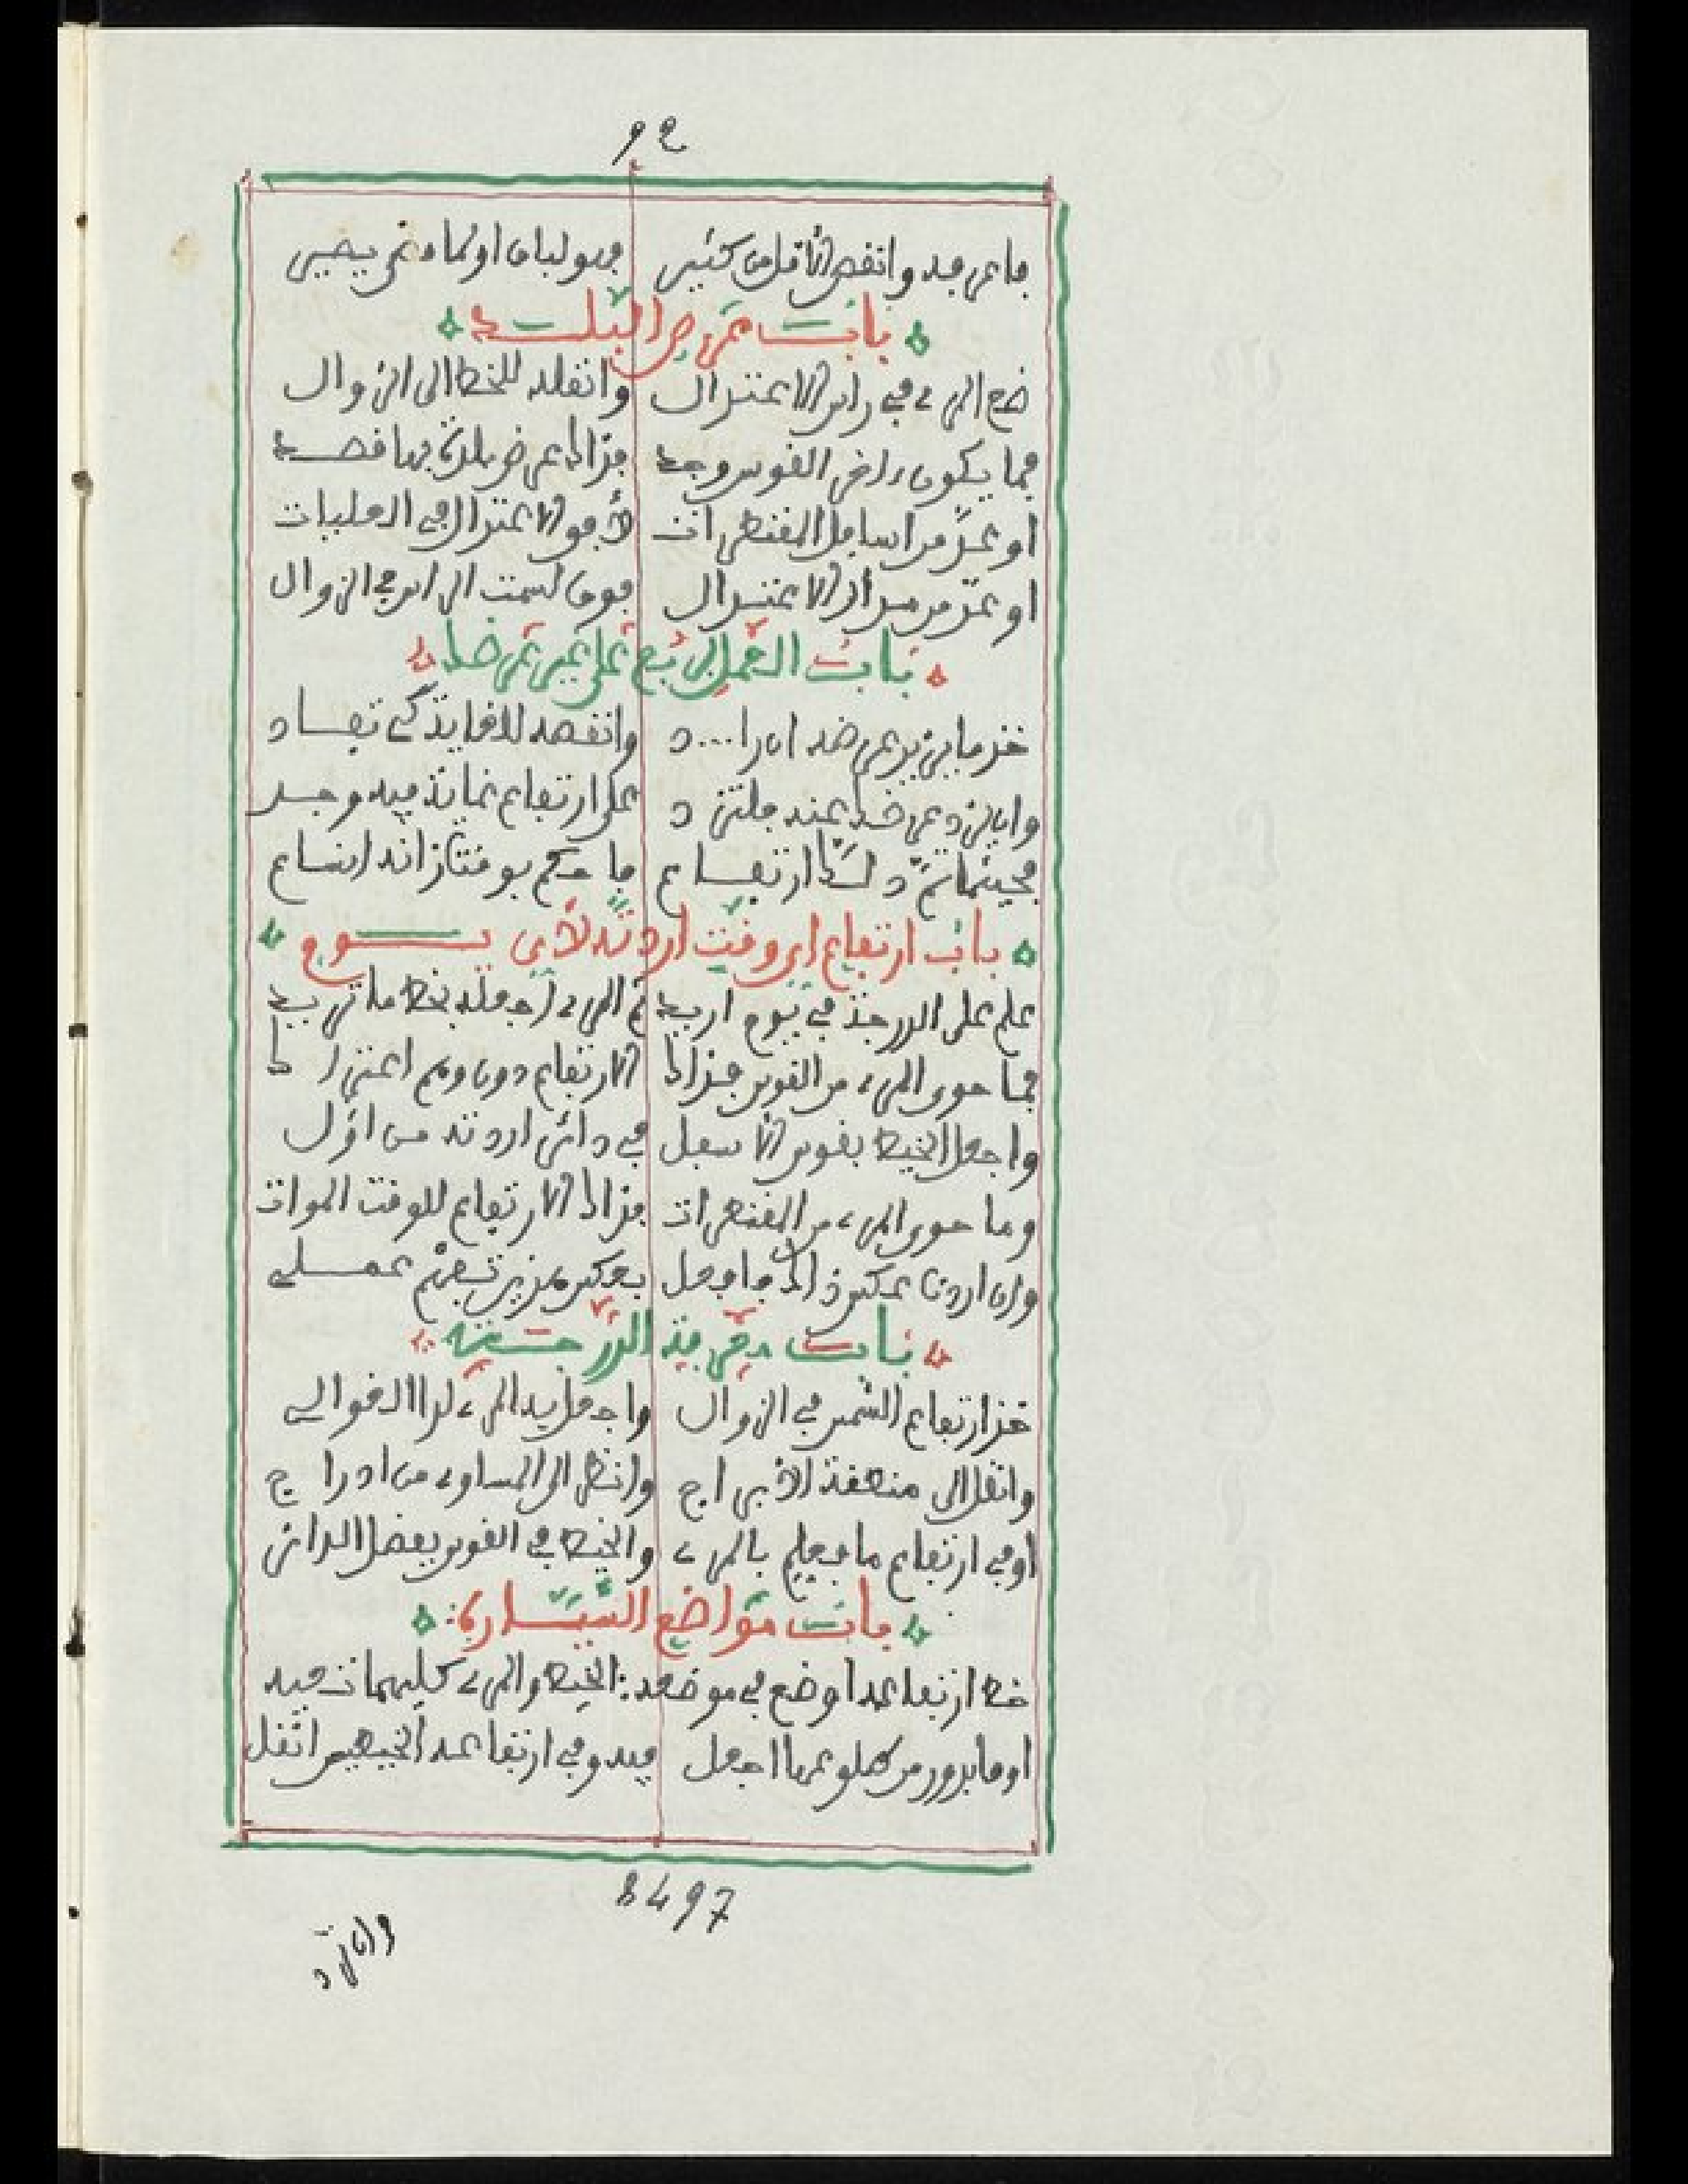 92
ما عرفه وانقص الأقل من كثير فهو لباق او لماء نحر يصير
باب عرض البلد
ضع المري في راس الاعتدال وانقله للخط الى الزوال
فما يكون راخر القوس وجد فذاك عرض بلدة بها قصد
او عد من اسافل المقنطرات لأفق الاعتدال في الحلبات
او عد من مدار الاعتدال فوق لسمت الراس في الزوال
باب العمل بربع على غير عرضك
خذ ما يزيد عرضه ان را....د وانقصه للغاية كي تفاد
وان يزد عرضك عنه فلتزد على ارتفاع غاية فيه وجد
فحيثما تم لك ارتفاع ما حكم بوقت زانه اتساع
باب ارتفاع اي وقت اردته لأي يوم
علم على الدرجة في يوم اريد ثم المري اجعله بخط ما تريد
فما حوى المري من القوس فذاك الارتفاع دون وهم اعتراك
واجعل الخيط بقوس الأسفل في دائر اردته من اول
وما حوى المري من المقنطرات فذاك الارتفاع للوقت المواث
وان اردت عكس ذاك فافعل بعكس هذين تفز عملي
باب معرفة الدرجة
خذ ارتفاع الشمس في الزوال واجعل يد المري لدا الفوالي
وانقل الى منطقة الأبراج وانظر الى المساوي من ادراج
او في ارتفاع ما يعلم بالمري والخيط في القوس بفضل الدائر
باب مواضع السيارة
خط ارتفاعه اوضع في موضعه: الخيط والمري كليهما ت فيه
او ما بدور من طلوعها اجعل فيه وفي ارتفاعه الخيط انقل
8497
وان يزد